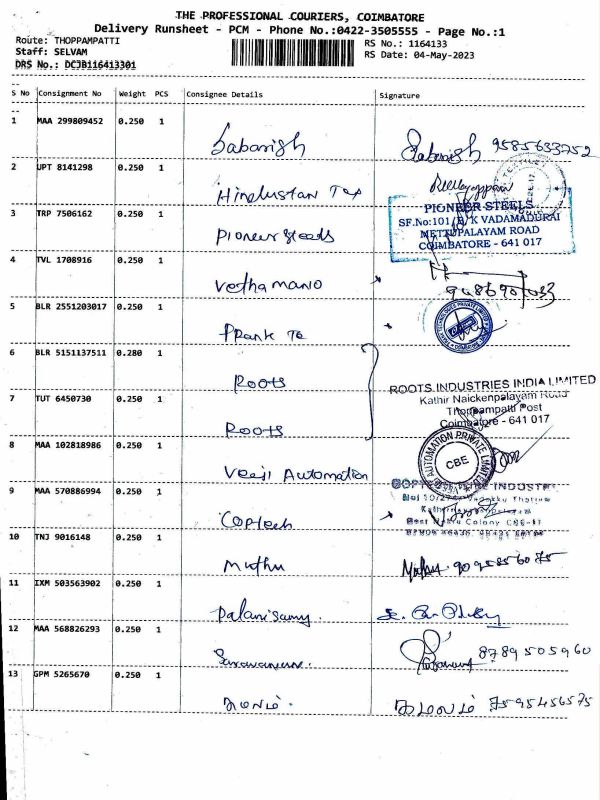 THE PROFESSIONAL COURIERS, COIMBATORE
Delivery Runsheet - PCM - Phone No.:0422-3505555 - Page No.:1
Route: THOPPAMPATTI RS No.: 1164133
Staff: SELVAM RS Date: 04-May-2023
DRS No.: DCJB116413301
S No Consignment No Weight PCS Consignee Details Signature
1 MAA 299809452 0.250 1 Sabarish Sabarish 9585633752
2 UPT 8141298 0.250 1 Hindustan Tex
3 TRP 7506162 0.250 1 Pioneer Steels
PIONEER STEELS
SF.No:101/B/K VADAMADURAI
METTUPALAYAM ROAD
COIMBATORE - 641 017
4 TVL 1708916 0.250 1 Vethamano
5 BLR 2551203017 0.250 1
6 BLR 5151137511 0.280 1 Roots
ROOTS INDUSTRIES INDIA LIMITED
Kathir Naickenpalayam Road
Thoppampatti Post
Coimbatore - 641 017
7 TUT 6450730 0.250 1 Roots
8 MAA 102818986 0.250 1 Veeji Automation
AUTOMATION PRIVATE LIMITED
CBE
9 MAA 570886994 0.250 1 Coptech
10 TNJ 9016148 0.250 1 Muthu
11 IXM 503563902 0.250 1 Palanisamy
12 MAA 568826293 0.250 1 Saravanan. 8789505960
13 GPM 5265670 0.250 1 கமலம். கமலம் 7595456575